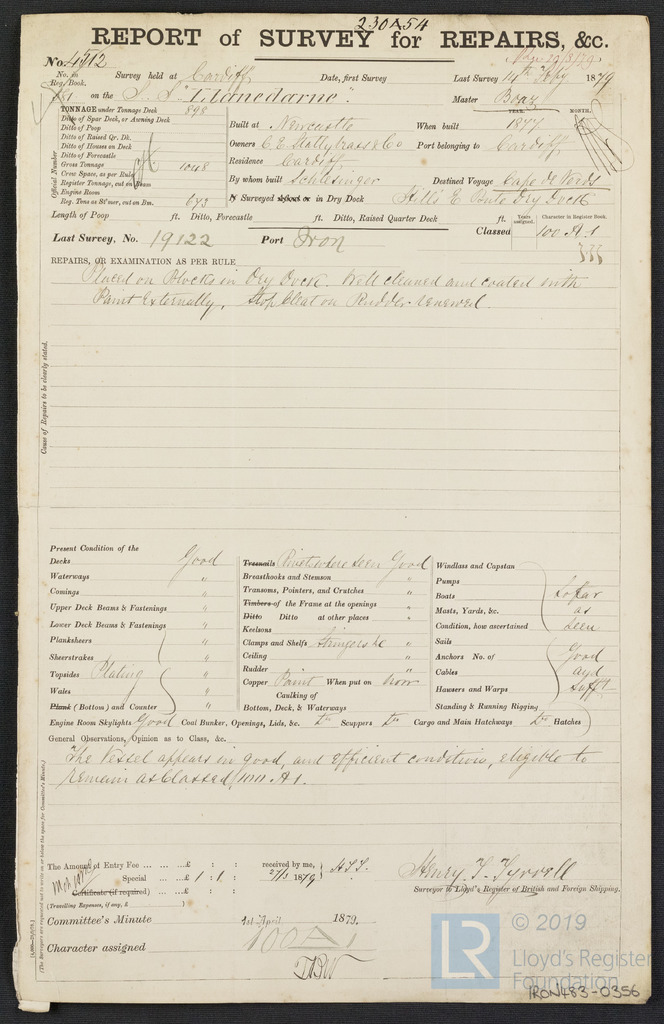 230A54
REPORT of SURVEY for REPAIRS, &c.
No. 4512
No. in Reg. Book. Survey held at Cardiff Date, first Survey Last Survey 14th 1879
on the S.S. "Llanedarne". Master Boaz
TONNAGE under Tonnage Deck 898
Ditto of Spar Deck, or Awning Deck
Ditto of Poop
Ditto of Raised Qr. Dk.
Ditto of Houses on Deck
Ditto of Forecastle
Gross Tonnage 1048
Crew Space, as per Rule
Register Tonnage, cut on Beam
Engine Room
Reg. Tons as St'mer, cut on Bm. 673
Official Number
YEAR. MONTH.
Built at Newcastle When built 1877
Owners C. E. Stallybrass & Co Port belonging to Cardiff
Residence Cardiff
By whom built Schlesinger Destined Voyage Cape de Verds
If Surveyed afloat or in Dry Dock Hills E Bute Dry Dock
Length of Poop ft. Ditto, Forecastle ft. Ditto, Raised Quarter Deck ft.
Years assigned. Character in Register Book.
Last Survey, No. 19122 Port Iron Classed 100 A1
REPAIRS, OR EXAMINATION AS PER RULE
Placed on Blocks in Dry Dock. Well cleaned and coated with
Paint Externally, Stop Cleat on Rudder renewed.
Cause of Repairs to be clearly stated.
Present Condition of the
Decks Good
Waterways "
Comings "
Upper Deck Beams & Fastenings "
Lower Deck Beams & Fastenings "
Planksheers "
Sheerstrakes "
Topsides Plating "
Wales "
Plank (Bottom) and Counter "
Treenails Rivets where seen Good
Breasthooks and Stemson "
Transoms, Pointers, and Crutches "
Timbers of the Frame at the openings "
Ditto Ditto at other places "
Keelsons "
Clamps and Shelfs Stringers &c "
Ceiling "
Rudder "
Copper Paint When put on Now
Caulking of
Bottom, Deck, & Waterways
Windlass and Capstan
Pumps
Boats
Masts, Yards, &c.
Condition, how ascertained
So far
as
seen
Sails
Anchors No. of
Cables
Hawsers and Warps
Standing & Running Rigging
Good
and
Sufft
Engine Room Skylights Good Coal Bunker, Openings, Lids, &c. Do Scuppers Do Cargo and Main Hatchways Do Hatches
General Observations, Opinion as to Class, &c.
The Vessel appears in good, and efficient condition, eligible to
remain as Classed, 100 A1.
(The Surveyors are requested not to write on or below the space for Committee's Minute.)
The Amount of Entry Fee ... ... ... £ : : received by me,
Special ... ... £ 1 : 1 : 27/3 1879
Certificate (if required) ... £ : :
(Travelling Expenses, if any, £ )
Henry T. Tyrrell
Surveyor to Lloyd's Register of British and Foreign Shipping.
Committee's Minute 1st April 1879.
Character assigned 100A1
© 2019
LR
Lloyd's Register
Foundation
IRON483-0356